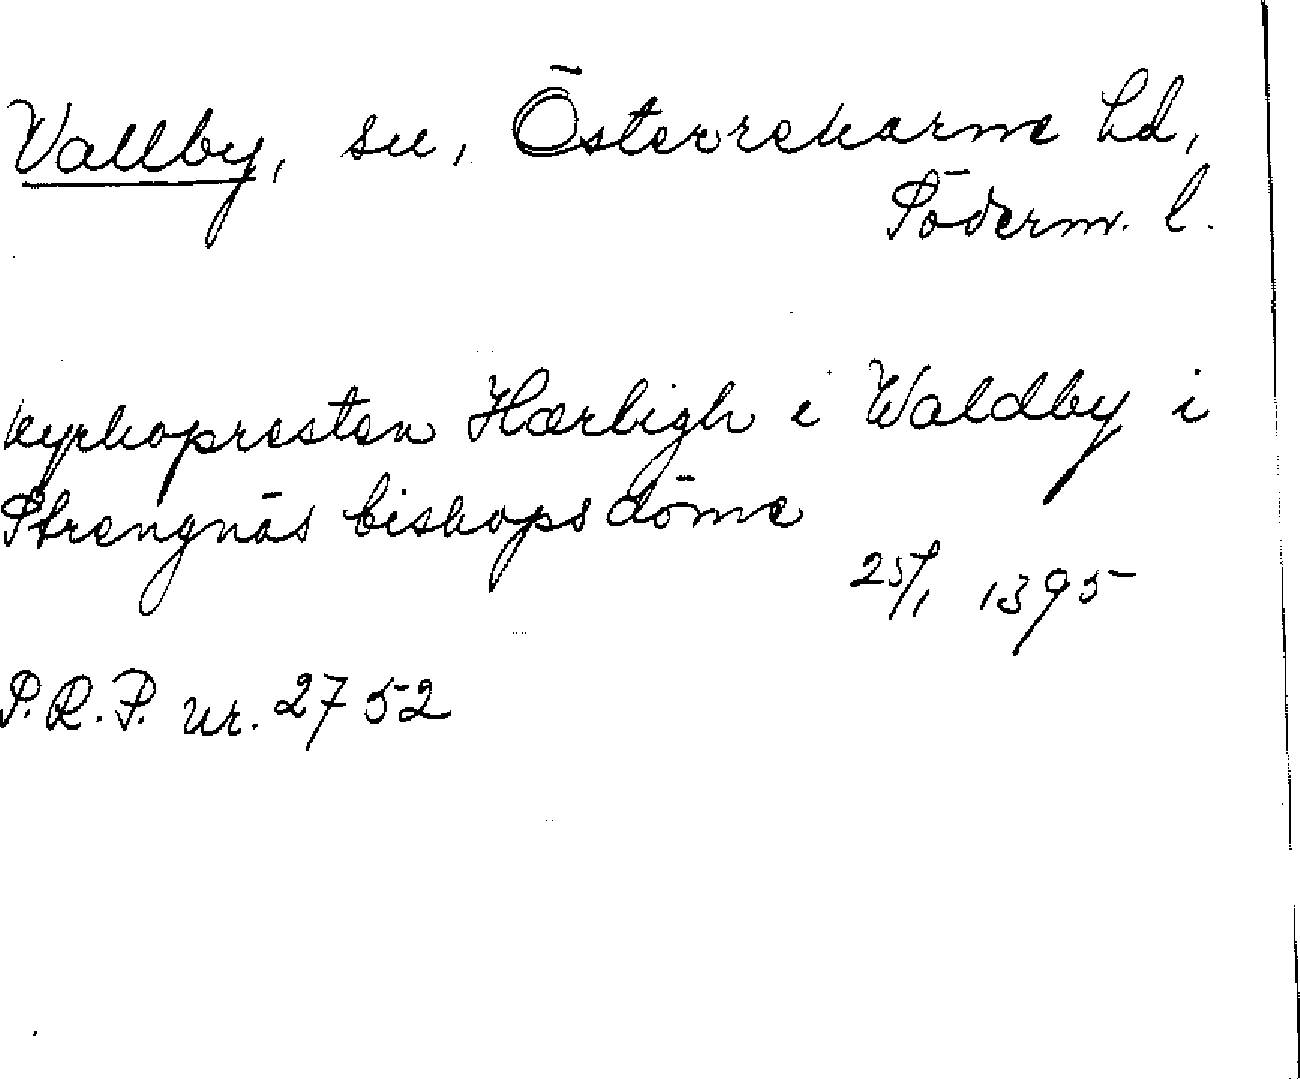 Vallby, sn, Österrekarne hd,
Söderm. l.
kyrkopresten Hærligh i Waldby i
Strengnäs biskopsdöme
25/1 1395
S.R.P. nr. 2752